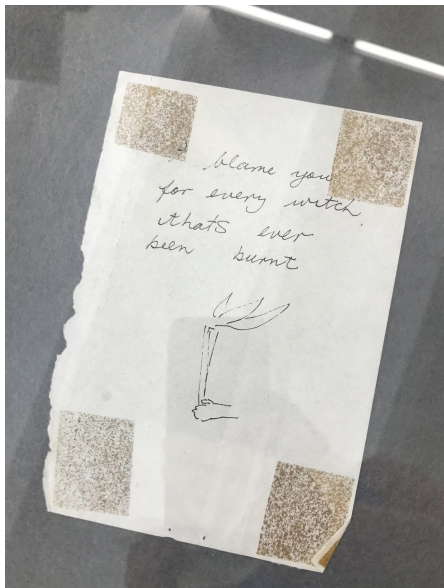 I blame you
for every witch
thats ever
been burnt